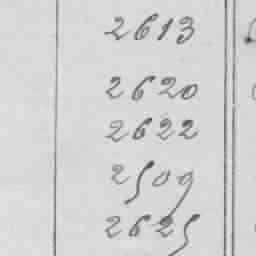 2613
2620
2622
2509
2625